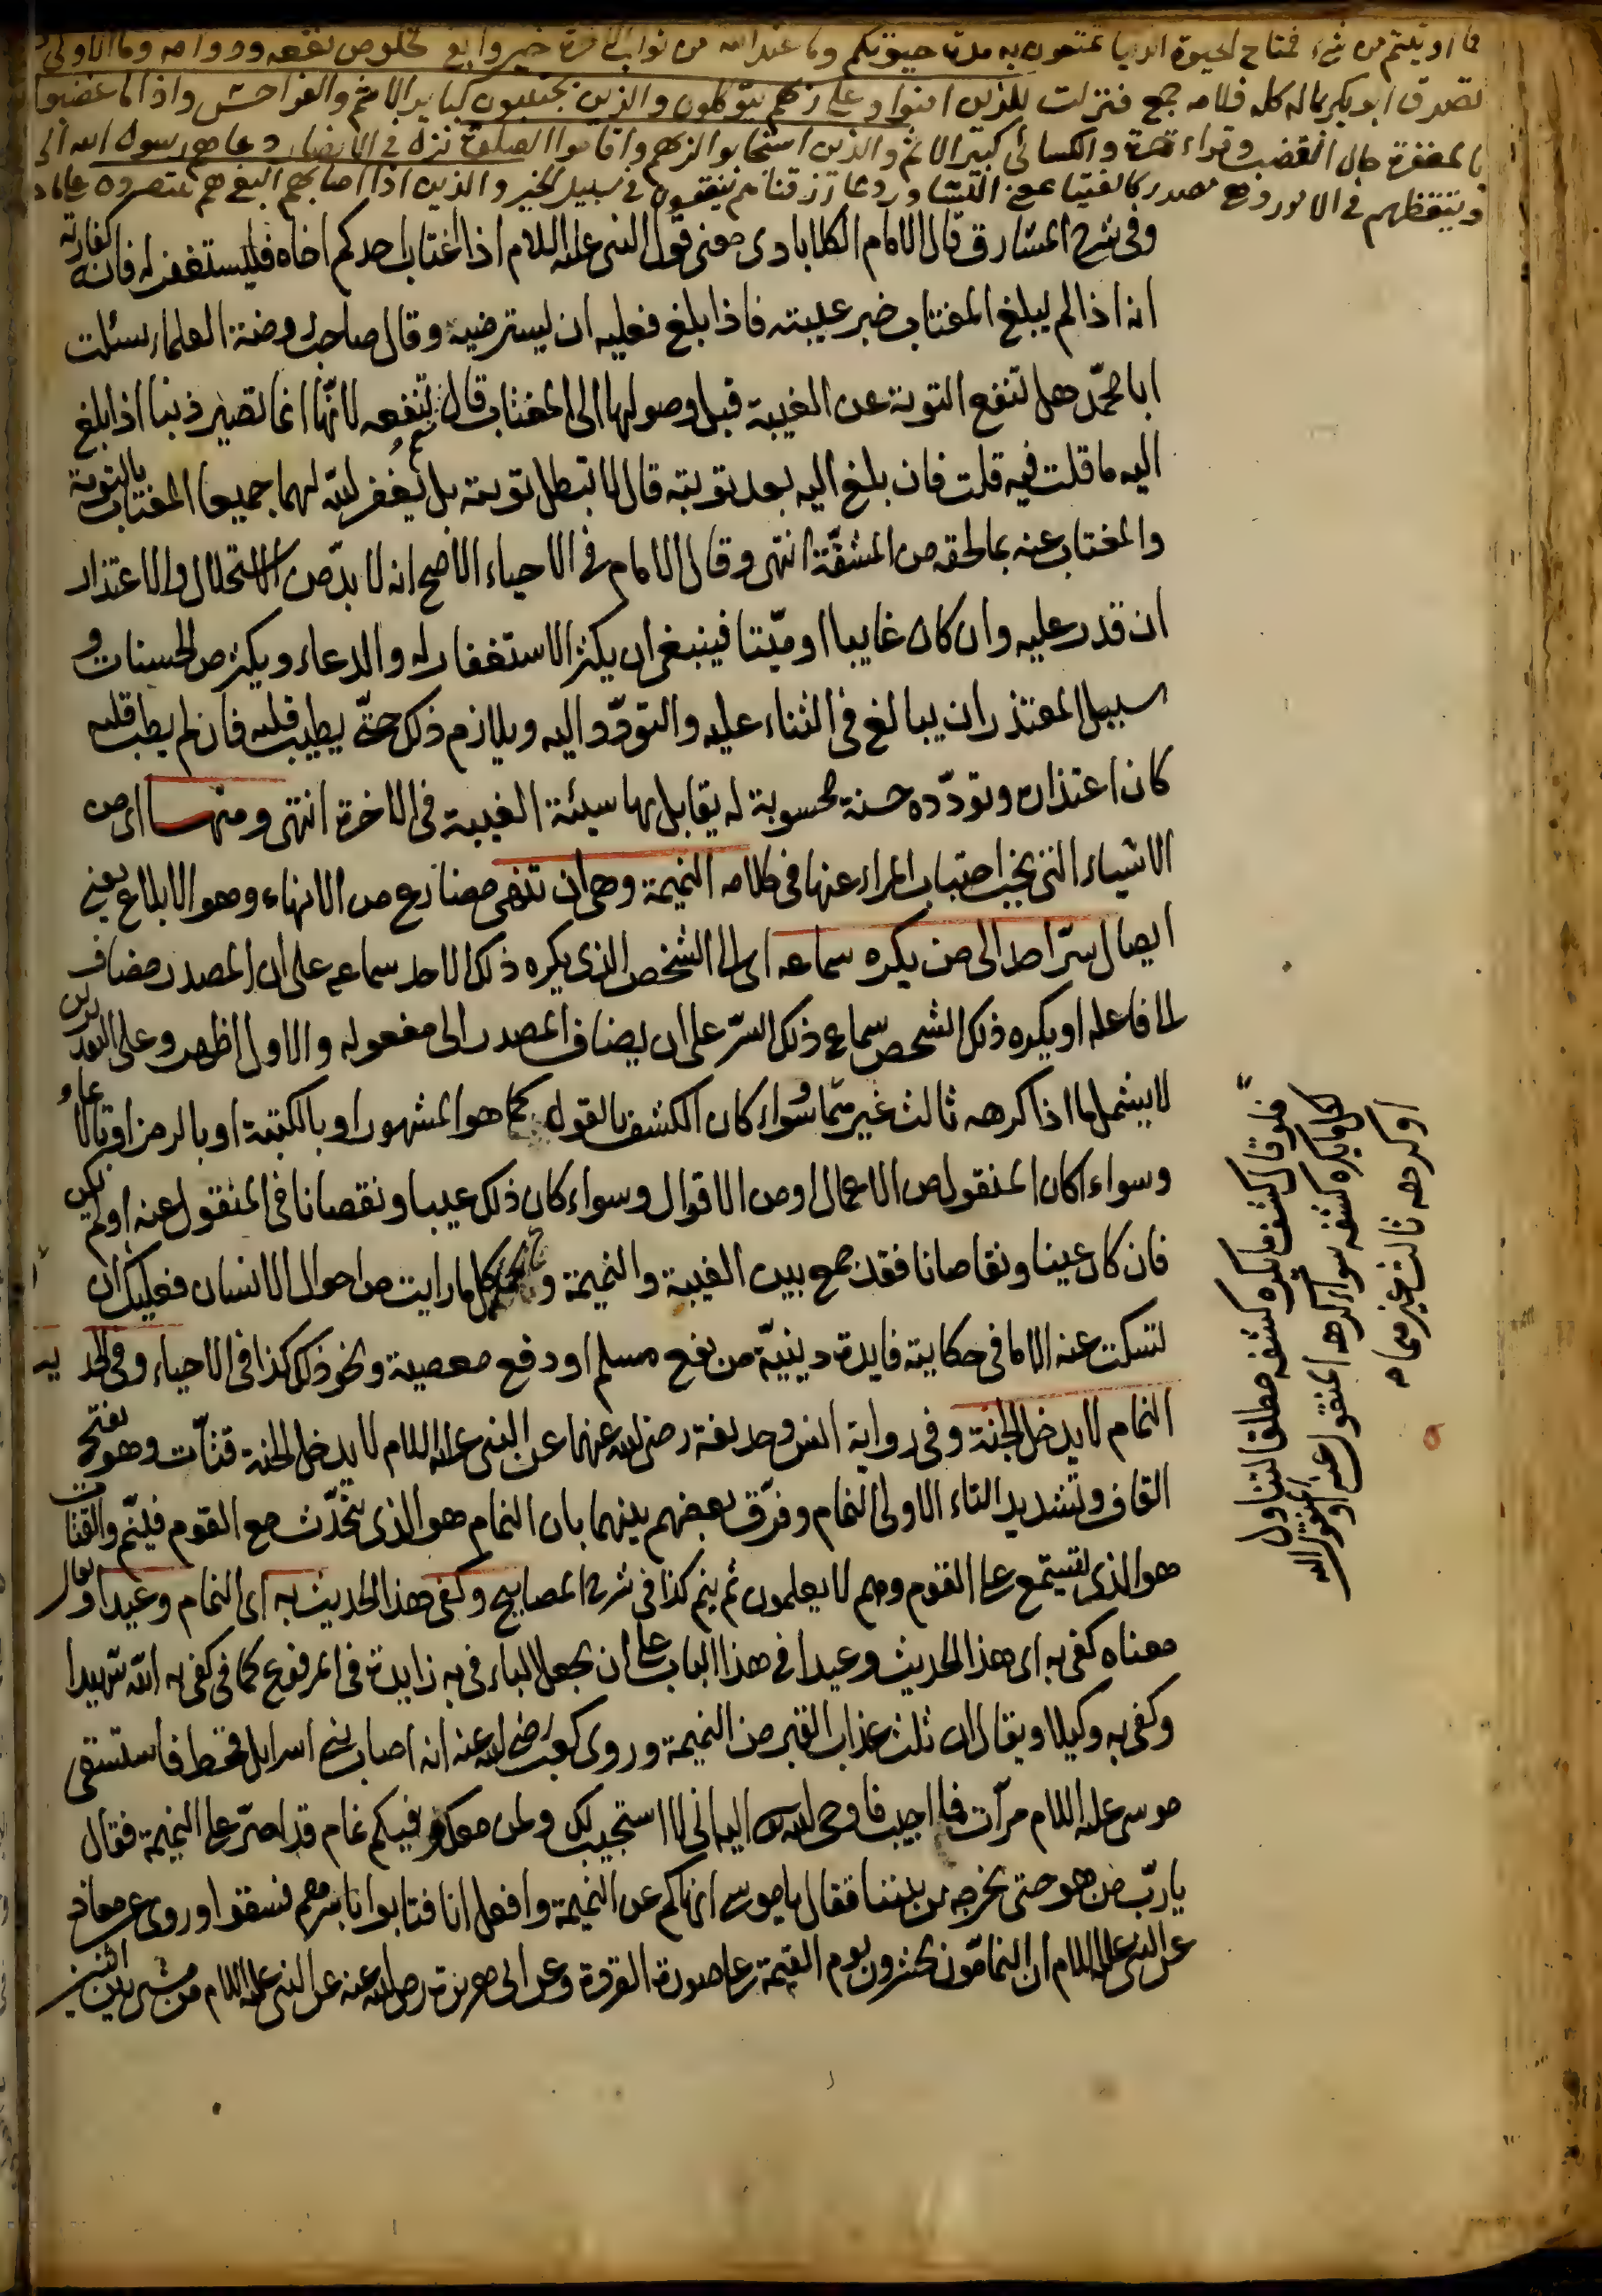 فما اوتيتم من شئ فمتاح الحيوة الدنيا تمتعون به مدة حيوتكم وما عند الله من ثواب الاخرة خير وابقى لخلوص نفعه ودوامه
تصدق ابو بكر بماله كله فلامه جمع فنزلت للذين امنوا وعلى ربهم يتوكلون والذين يجتنبون كباير الاثم والفواحش واذا ما غضبوا
بالمغفرة حال الغضب وقراءة حمزة والكسائى كبير الاثم والذين استجابوا لربهم واقاموا الصلوة نزلت فى الانصار دعاهم رسول الله الى
وتيقظهم فى الامور وهى مصدر كالفتيا بمعنى التشاور ومما رزقناهم ينفقون فى سبيل الخير والذين اذا اصابهم البغى هم ينتصرون على ما
وفى شرح المشارق قال الامام الكلابادى معنى قول النبى عليه السلام اذا اغتاب احدكم اخاه فليستغفر له فانه كفارته
انه اذا لم يبلغ المغتاب خبر غيبته فاذا بلغ فعليه ان يسترضيه وقال صاحب روضة العلماء سئلت
ابا محمّد هل تنفع التوبة عن الغيبة قبل وصولها الى المغتاب قال تنفعه لانّها انما تصير ذنبا اذا بلغ
اليه ما قلت فيه قلت فان بلغ اليه بعد توبته قال لا تبطل توبته بل يغفر الله لهما جميعا المغتاب بالتوبة
والمغتاب عنه بما لحقه من المشقّة انتهى وقال الامام فى الاحياء الاصح انه لا بدّ من الاستحلال والاعتذار
ان قدر عليه وان كان غايبا او ميّتا فينبغى ان يكثر الاستغفار له والدعاء ويكثر من الحسنات و
سبيل المعتذر ان يبالغ فى الثناء عليه والتودّد اليه ويلازم ذلك حتّى يطيب قلبه فان لم يطب قلبه
كان اعتذاره وتودّده حسنة محسوبة له يقابل بها سيئة الغيبة فى الاخرة انتهى ومنها اى من
الاشياء التى يجب اجتناب المراء عنها فى كلامه النميمة وهى ان تنهى مضارع من الانهاء وهو الابلاغ يعنى
ايصال سرّ احد الى من يكره سماعه اى الى الشخص الذى يكره ذلك الاحد سماعه على ان المصدر مضاف
الى فاعله او يكره ذلك الشخص سماع ذلك السرّ على ان يضاف المصدر الى مفعوله والاول اظهر وعلى التقديرين
لا يشمل ما اذا كرهه ثالث غيرهما وسواء كان الكشف بالقول كما هو المشهور او بالكتبة او بالرمز او بالايماء
وسواء اكان المنقول من الاعمال او من الاقوال وسواء كان ذلك عيبا ونقصانا فى المنقول عنه او لم يكن
فان كان عيبا ونقصانا فقد جمع بين الغيبة والنميمة و كل ما رايت من احوال الانسان فعليك ان
تسكت عنه الا ما فى حكايته فايدة دينيّة من نفع مسلم او دفع معصية ونحو ذلك كذا فى الاحياء وفى الحديث
النمام لا يدخل الجنة وفى رواية انس وحذيفة رضى الله عنهما عن النبى عليه السلام لا يدخل الجنة قتّات وهو بفتح
القاف وتشديد التاء الاولى النمام وفرّق بعضهم بينهما بان النمام هو الذى يتحدّث مع القوم فينمّ والقتات
هو الذى يستمع على القوم وهم لا يعلمون ثم ينم كذا فى شرح المصابيح وكفى هذا الحديث به اى النمام وعيدا او يقال
معناه كفى به اى هذا الحديث وعيدا فى هذا الباب على ان يجعل الباء فى به زايدة فى المرفوع كما فى كفى به الله شهيدا
وكفى به وكيلا ويقال ان ثلث عذاب القبر من النميمة وروى كعب رضى الله عنه انه اصاب بنى اسرايل قحط فاستسقى
موسى عليه السلام مرّات فما اجيب فاوحى الله اليه انى لا استجيب لك ولمن معك وفيكم نمام قد اصرّ على النميمة فقال
يا ربّ من هو حتى نخرجه من بيننا فقال يا موسى انهاكم عن النميمة وافعل انا فتابوا باسرهم فسقوا وروى عن معاذ
عن النبى عليه السلام ان النمّامون يحشرون يوم القيمة على صورة القردة وعن ابى هريرة رضى الله عنه عن النبى عليه السلام من مشى بين اثنين
فلو قال كشف ما يكره كشفه مطلقا لتناول
كل ما يكره كشفه سواء كرهه المنقول عنه او المنقول اليه
او كرهه ثالث غيرهما م